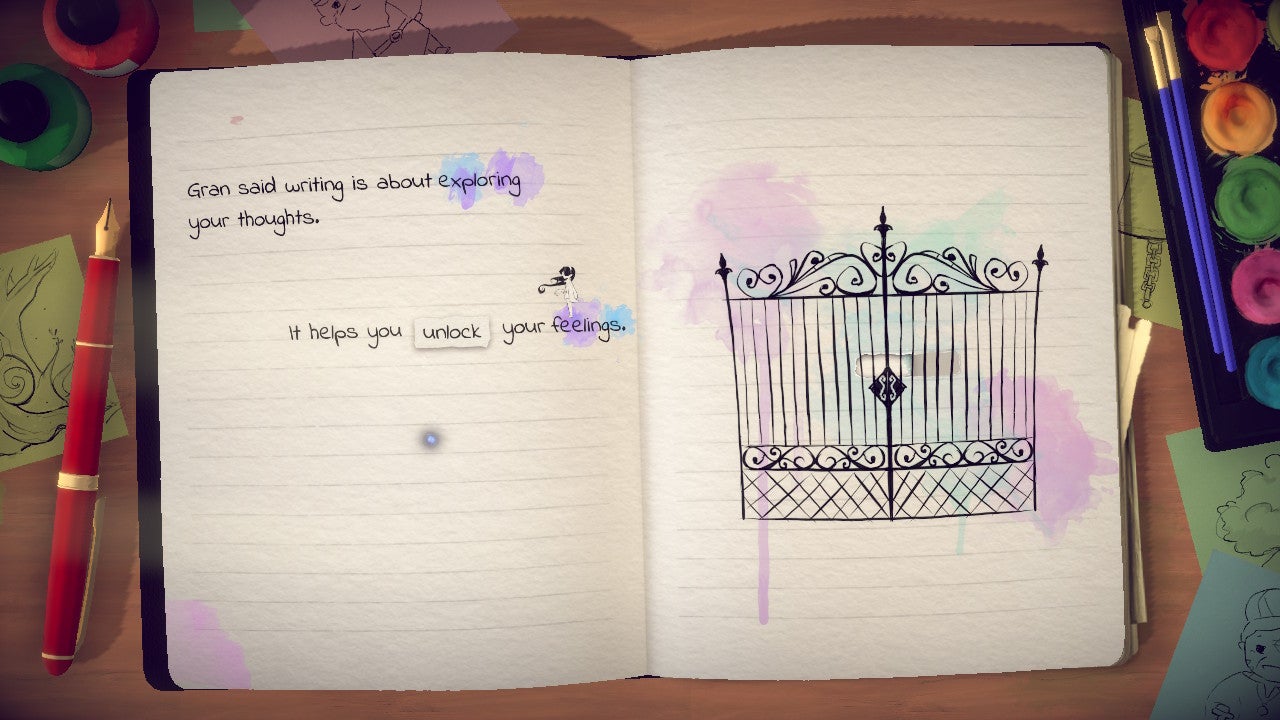 Gran said writing is about exploring
your thoughts.
It helps you unlock your feelings.